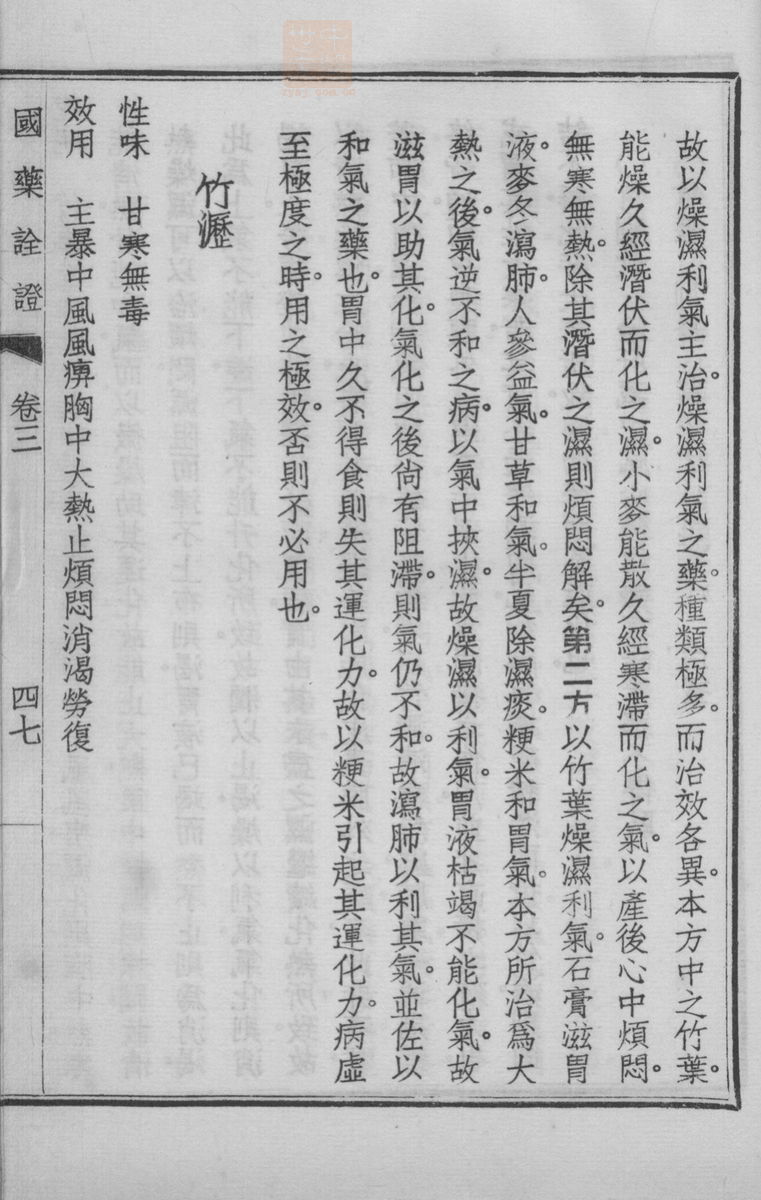 故以燥濕利氣主治。燥濕利氣之藥。種類極多。而治效各異。本方中之竹葉。
能燥久經潛伏而化之濕。小麥能散久經寒滯而化之氣。以產後心中煩悶。
無寒無熱。除其潛伏之濕則煩悶解矣。第二方以竹葉燥濕利氣。石膏滋胃
液。麥冬瀉肺。人參益氣。甘草和氣。半夏除濕痰。粳米和胃氣。本方所治爲大
熱之後。氣逆不和之病。以氣中挾濕。故燥濕以利氣。胃液枯竭不能化氣。故
滋胃以助其化。氣化之後尙有阻滯。則氣仍不和。故瀉肺以利其氣。並佐以
和氣之藥也。胃中久不得食則失其運化力。故以粳米引起其運化力。病虛
至極度之時。用之極效。否則不必用也。
竹瀝
性味　甘寒無毒
效用　主暴中風風痹胸中大熱止煩悶消渴勞復
國藥詮證　卷三　四七